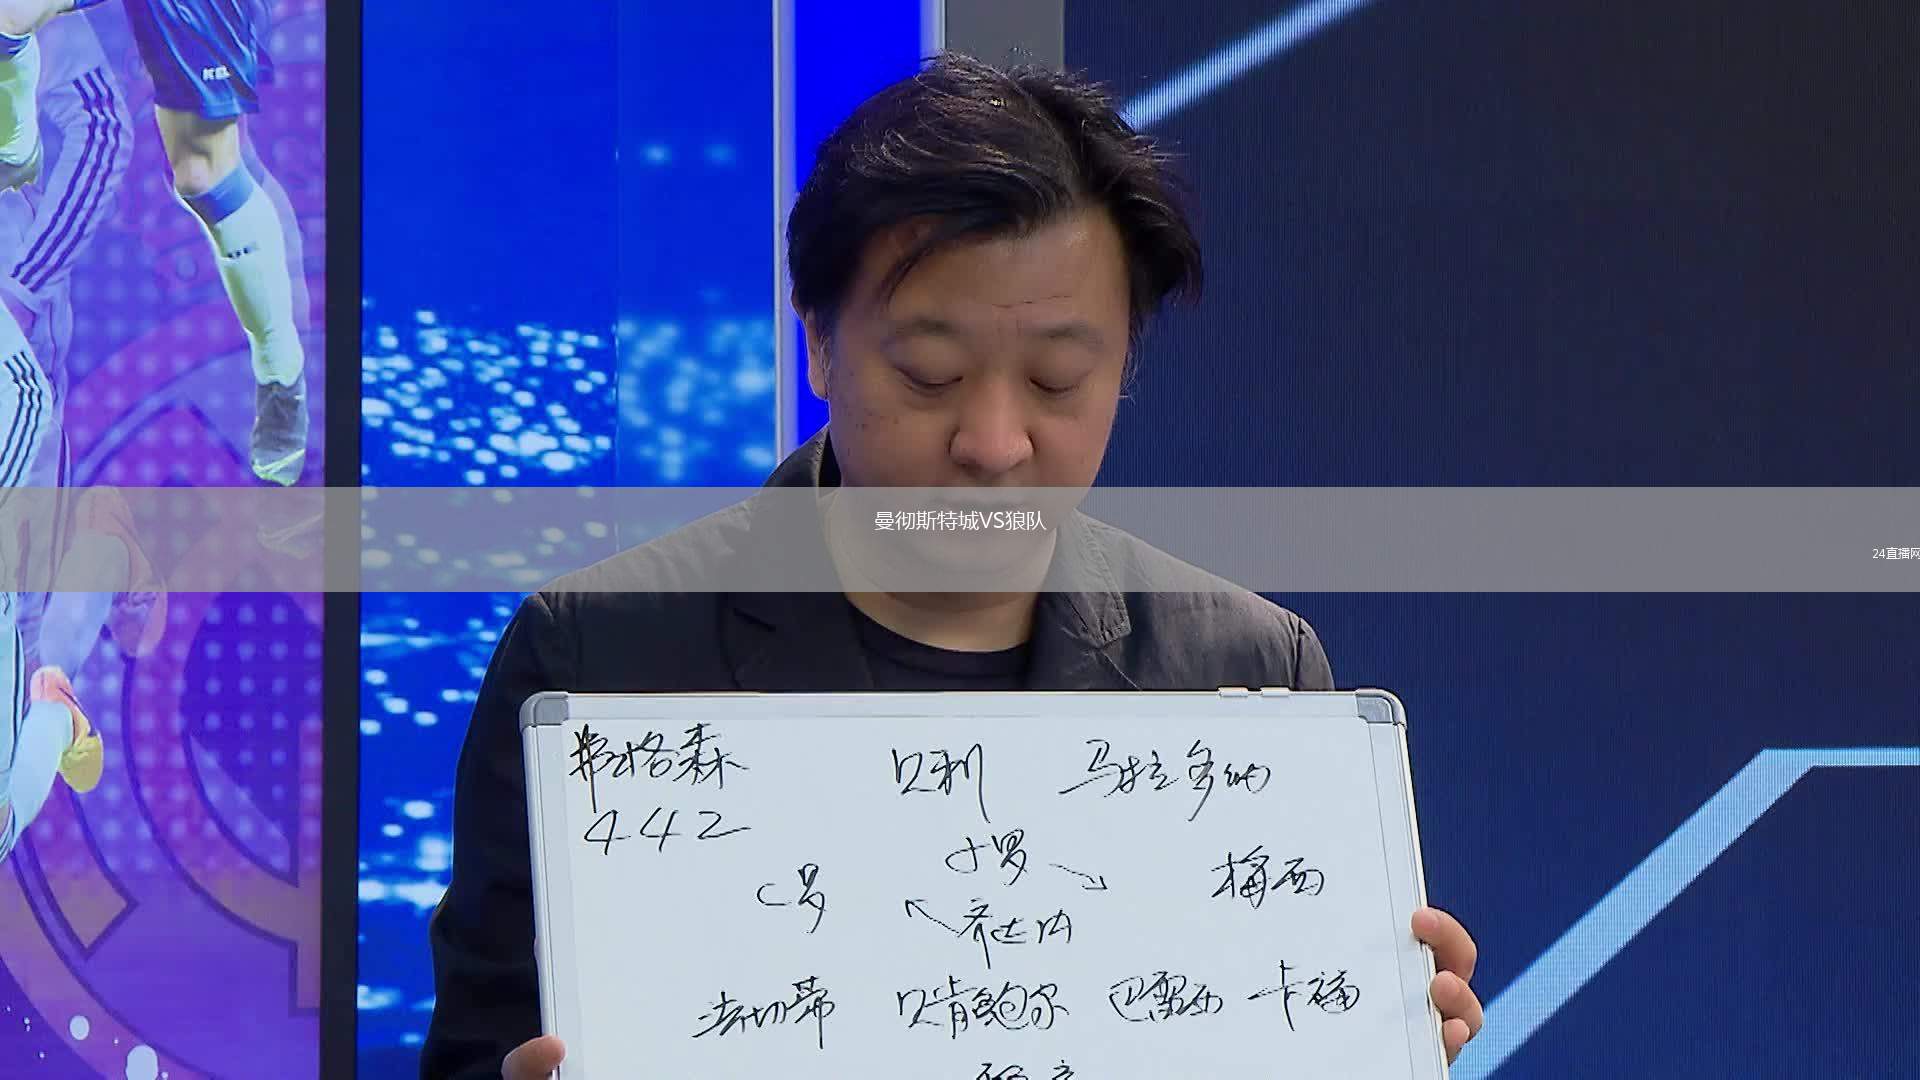 KEL
曼彻斯特城VS狼队
24直播网
弗格森 贝利 马拉多纳
442
小罗
C罗 梅西
齐达内
法切蒂 贝肯鲍尔 巴雷西 卡福